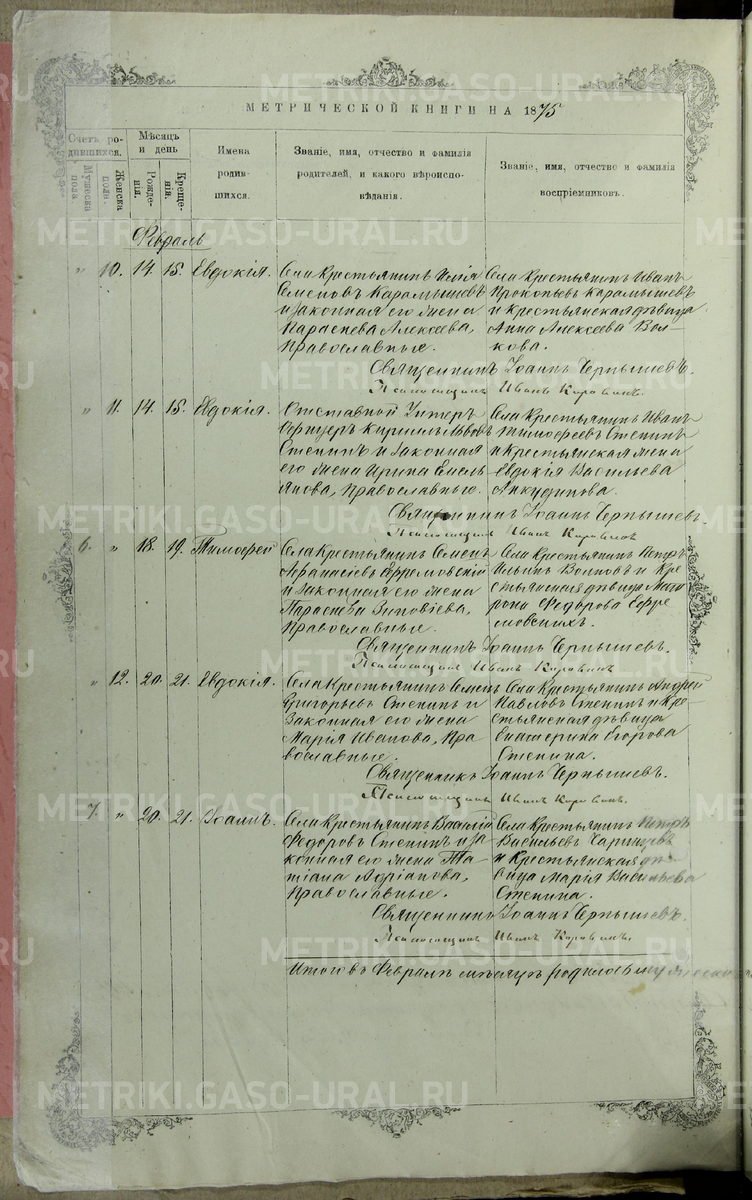 МЕТРИЧЕСКОЙ КНИГИ НА 1875
Счетъ родившихся.
Мужеска пола.
Женска пола.
Мѣсяцъ и день
Рожденія.
Крещенія.
Имена родившихся.
Званіе, имя, отчество и фамилія родителей, и какого вѣроисповѣданія.
Званіе, имя, отчество и фамилія воспріемниковъ.
Февраль
" 10. 14. 15. Евдокія.
Села Крестьянинъ Илія
Семеновъ Карамышевъ
и законная его жена
Параскева Алексеева,
Православные.
Села Крестьянинъ Иванъ
Прокопьевъ Карамышевъ
и крестьянская дѣвица
Анна Алексеева Вол-
кова.
Священникъ Іоаннъ Чернышевъ.
Псаломщикъ Иванъ Коровинъ.
" 11. 14. 15. Евдокія.
Отставной Унтеръ
Офицеръ Кириллъ Львовъ
Степинъ и законная
его жена Ирина Емель
янова, Православные.
Села Крестьянинъ Иванъ
Тимофеевъ Степинъ
и Крестьянская жена
Евдокія Васильева
Анкудинова.
Священникъ Іоаннъ Чернышевъ.
Псаломщикъ Иванъ Коровинъ
6. " 18. 19. Тимофей
Села Крестьянинъ Семенъ
Афанасіевъ Ефремовскій
и законная его жена
Параскева Зиновіева,
Православные.
Села Крестьянинъ Петръ
Ильинъ Волковъ и Кре
стьянская дѣвица Мат
рона Федорова Ефре
мовскихъ.
Священникъ Іоаннъ Чернышевъ.
Псаломщикъ Иванъ Коровинъ
" 12. 20. 21. Евдокія.
Села Крестьянинъ Семенъ
Григорьевъ Степинъ и
Законная его жена
Марія Иванова, Пра
вославные.
Села Крестьянинъ Андрей
Павловъ Степинъ и Кре
стьянская дѣвица
Екатерина Егорова
Степина.
Священникъ Іоаннъ Чернышевъ.
Псаломщикъ Иванъ Коровинъ.
7. " 20. 21. Іоаннъ.
Села Крестьянинъ Василій
Федоровъ Степинъ и за
конная его жена Та
тіана Адріанова,
Православные.
Села Крестьянинъ Петръ
Васильевъ
и Крестьянская дѣ
вица Марія Васильева
Степина.
Священникъ Іоаннъ Чернышевъ.
Псаломщикъ Иванъ Коровинъ.
Итого въ Февралѣ мѣсяцѣ родилось мужеска
METRIKI.GASO-URAL.RU